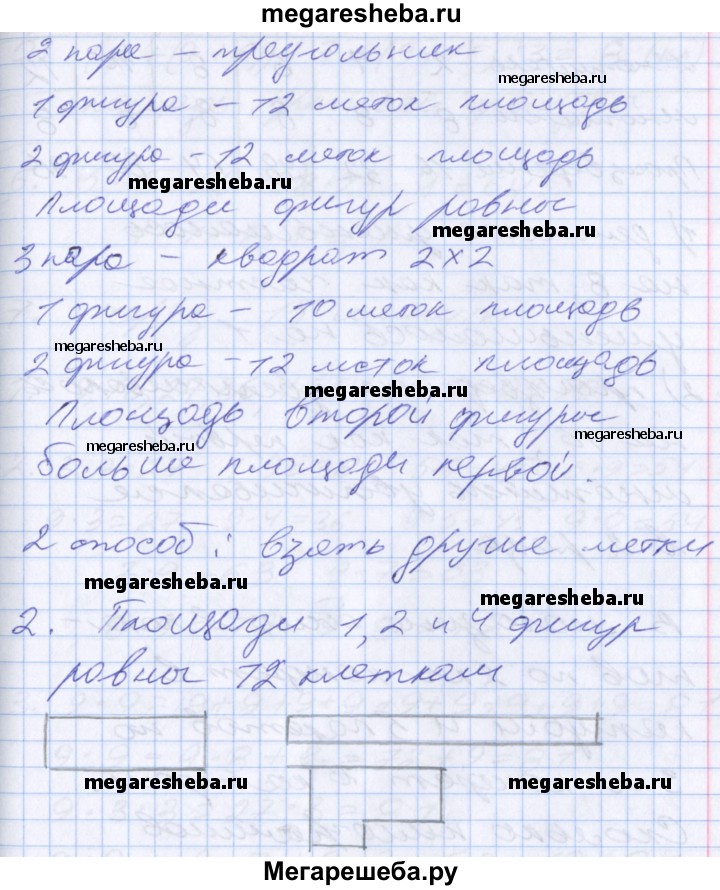 megaresheba.ru
2 пара – треугольник
megaresheba.ru
1 фигура – 12 меток площадь
2 фигура – 12 меток площадь
megaresheba.ru
Площади фигур равны
megaresheba.ru
3 пара – квадрат 2×2
1 фигура – 10 меток площадь
megaresheba.ru
2 фигура – 12 меток площадь
megaresheba.ru
Площадь второй фигуры
megaresheba.ru
megaresheba.ru
больше площади первой.
2 способ: взять другие метки
megaresheba.ru
megaresheba.ru
2. Площади 1, 2 и 4 фигур
равны 12 клеткам
megaresheba.ru
megaresheba.ru
Мегарешеба.ру